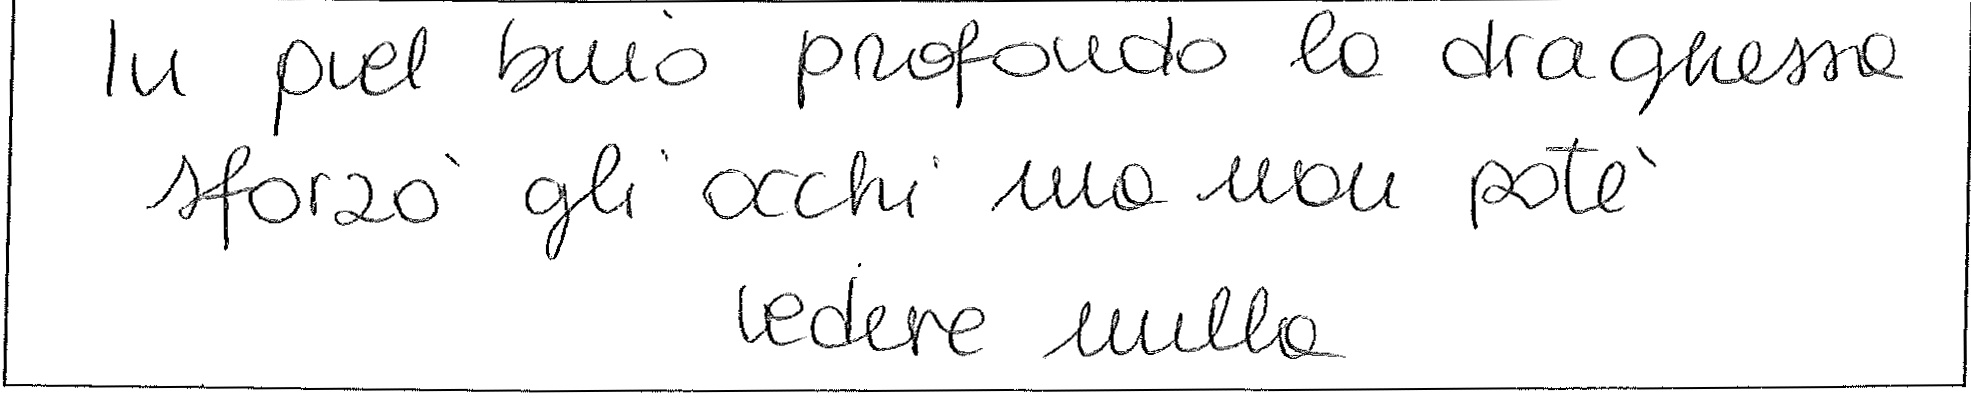 In quel buio profondo la draghessa
sforzò gli occhi ma non potè
vedere nulla